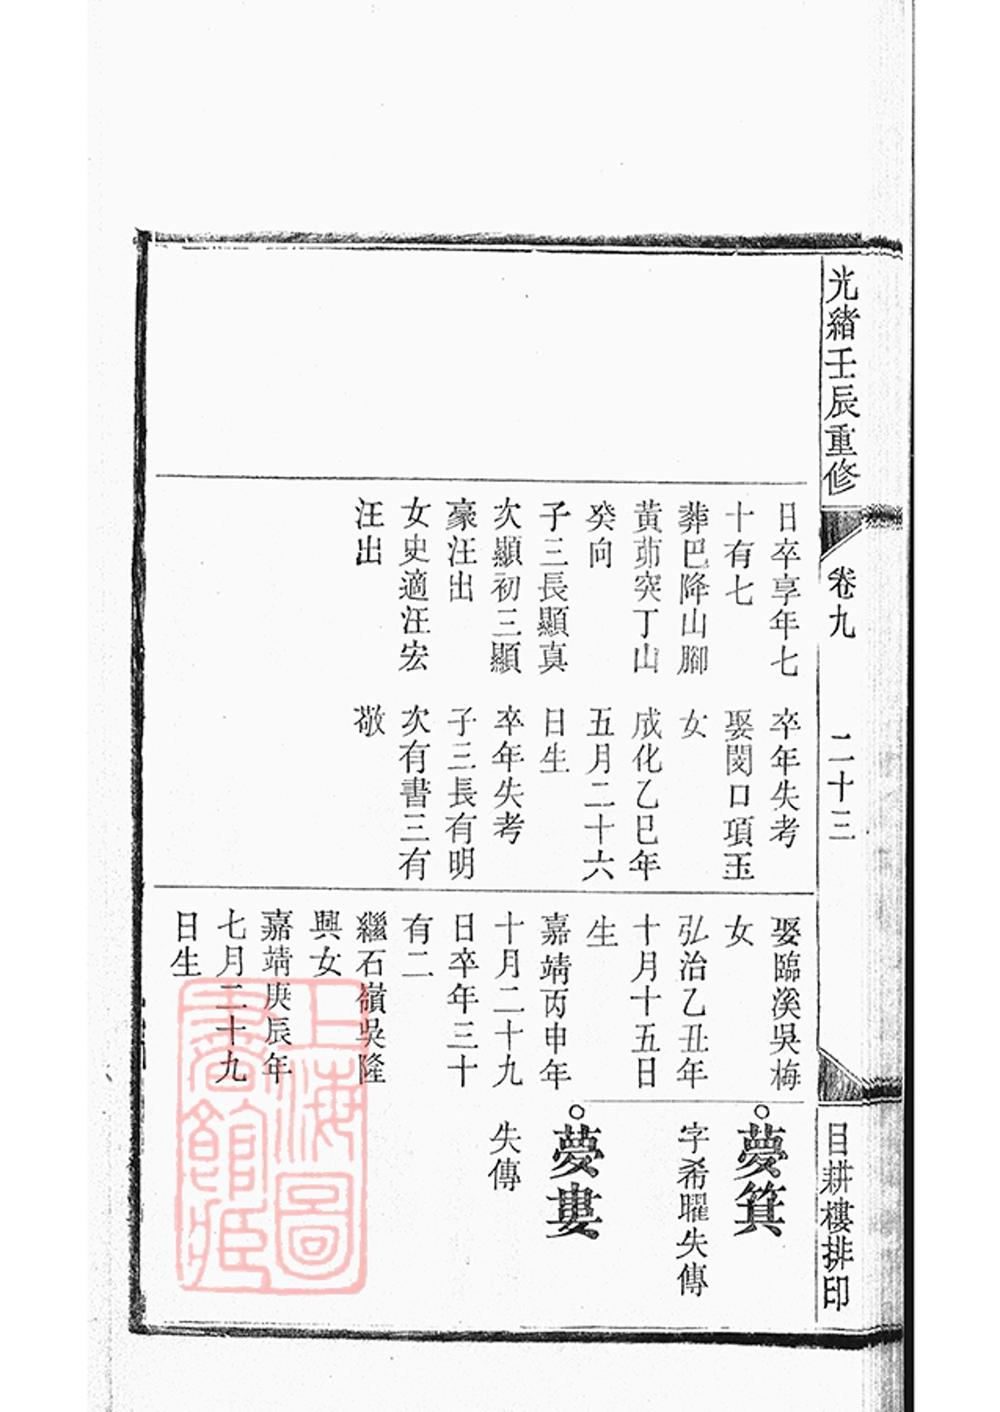 光緒壬辰重修
卷九
二十三
目耕樓排印
日卒享年七
十有七
葬巴降山腳
黃茆突丁山
癸向
子三長顯真
次顯初三顯
豪汪出
女史適汪宏
汪出
卒年失考
娶閔口項玉
女
成化乙巳年
五月二十六
日生
卒年失考
子三長有明
次有書三有
敬
娶臨溪吳梅
女
弘治乙丑年
十月十五日
生
嘉靖丙申年
十月二十九
日卒年三十
有二
繼石嶺吳隆
興女
嘉靖庚辰年
七月二十九
日生
夢箕
字希曜失傳
夢婁
失傳
上海圖
書館藏